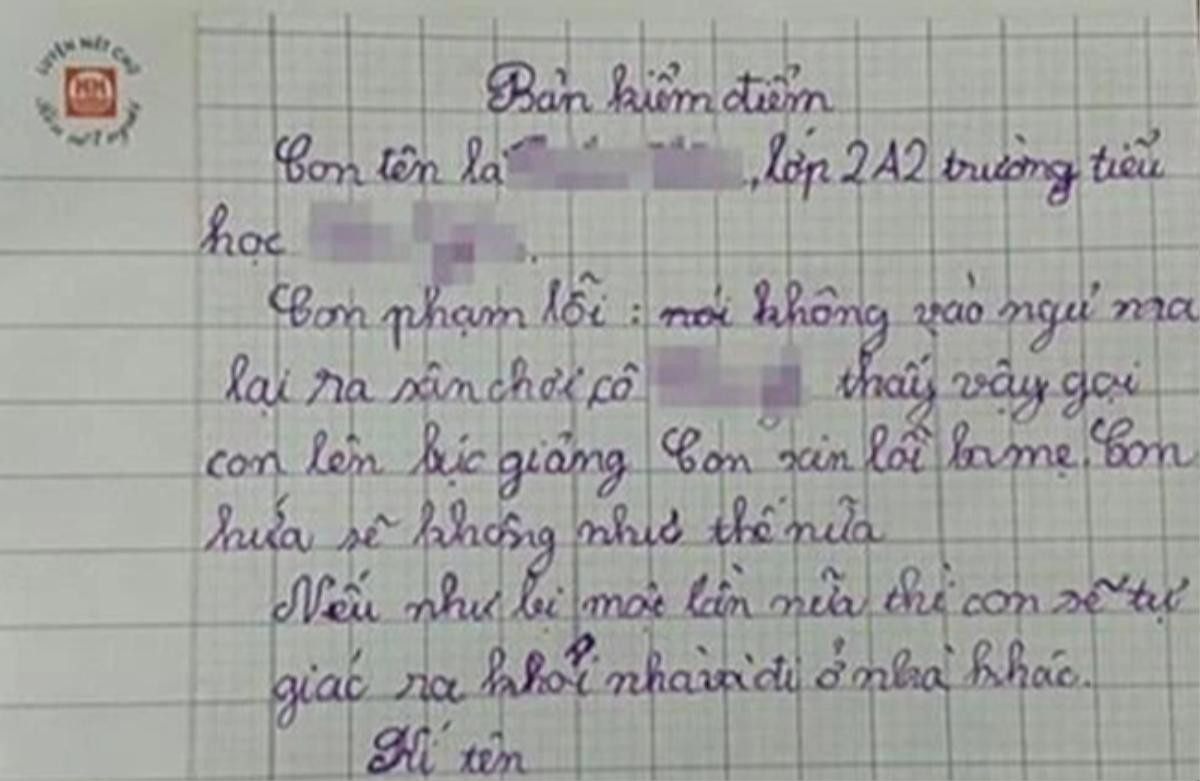 LUYỆN NÉT CHỮ
HH
RÈN NẾT NGƯỜI
Bản kiểm điểm
Con tên là , lớp 2A2 trường tiểu
học .
Con phạm lỗi : nói không vào ngủ mà
lại ra sân chơi, cô thấy vậy gọi
con lên bục giảng Con xin lỗi bố mẹ. Con
hứa sẽ không như thế nữa
Nếu như bị một lần nữa thì con sẽ tự
giác ra khỏi nhà và đi ở nhà khác.
Kí tên